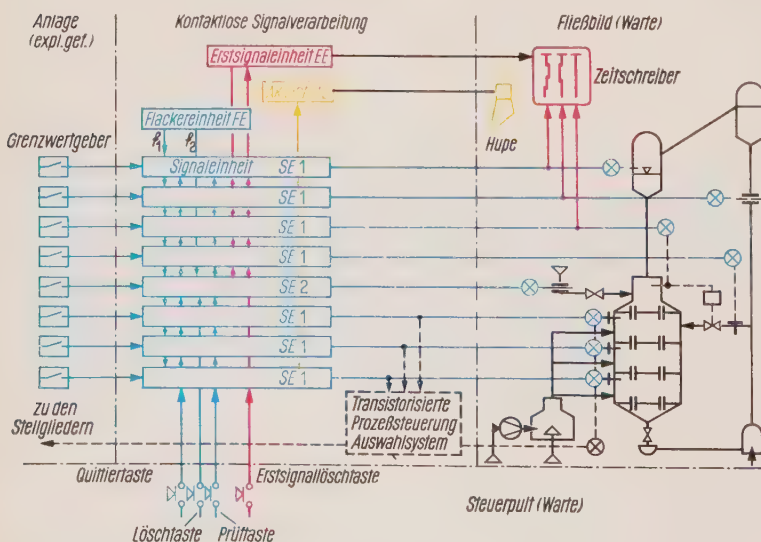 Anlage
(expl.gef.)
Kontaktlose Signalverarbeitung
Fließbild (Warte)
Erstsignaleinheit EE
Zeitschreiber
Flackereinheit FE
f1
f2
Hupe
Grenzwertgeber
Signaleinheit SE 1
SE 1
SE 1
SE 1
SE 2
SE 1
SE 1
SE 1
zu den
Stellgliedern
Transistorisierte
Prozeßsteuerung
Auswahlsystem
Quittiertaste
Erstsignallöschtaste
Löschtaste
Prüftaste
Steuerpult (Warte)